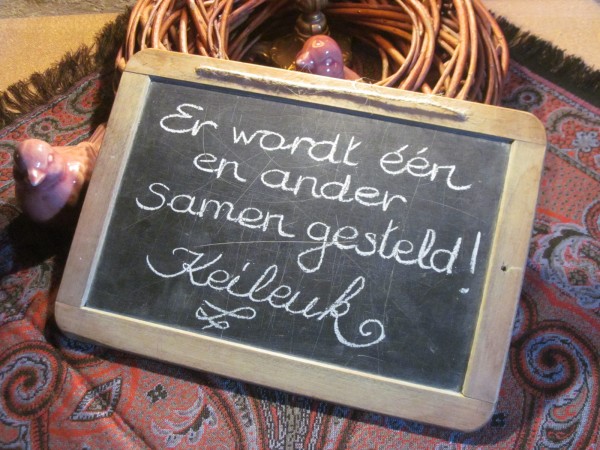 Er wordt één
en ander
samen gesteld!
Keileuk